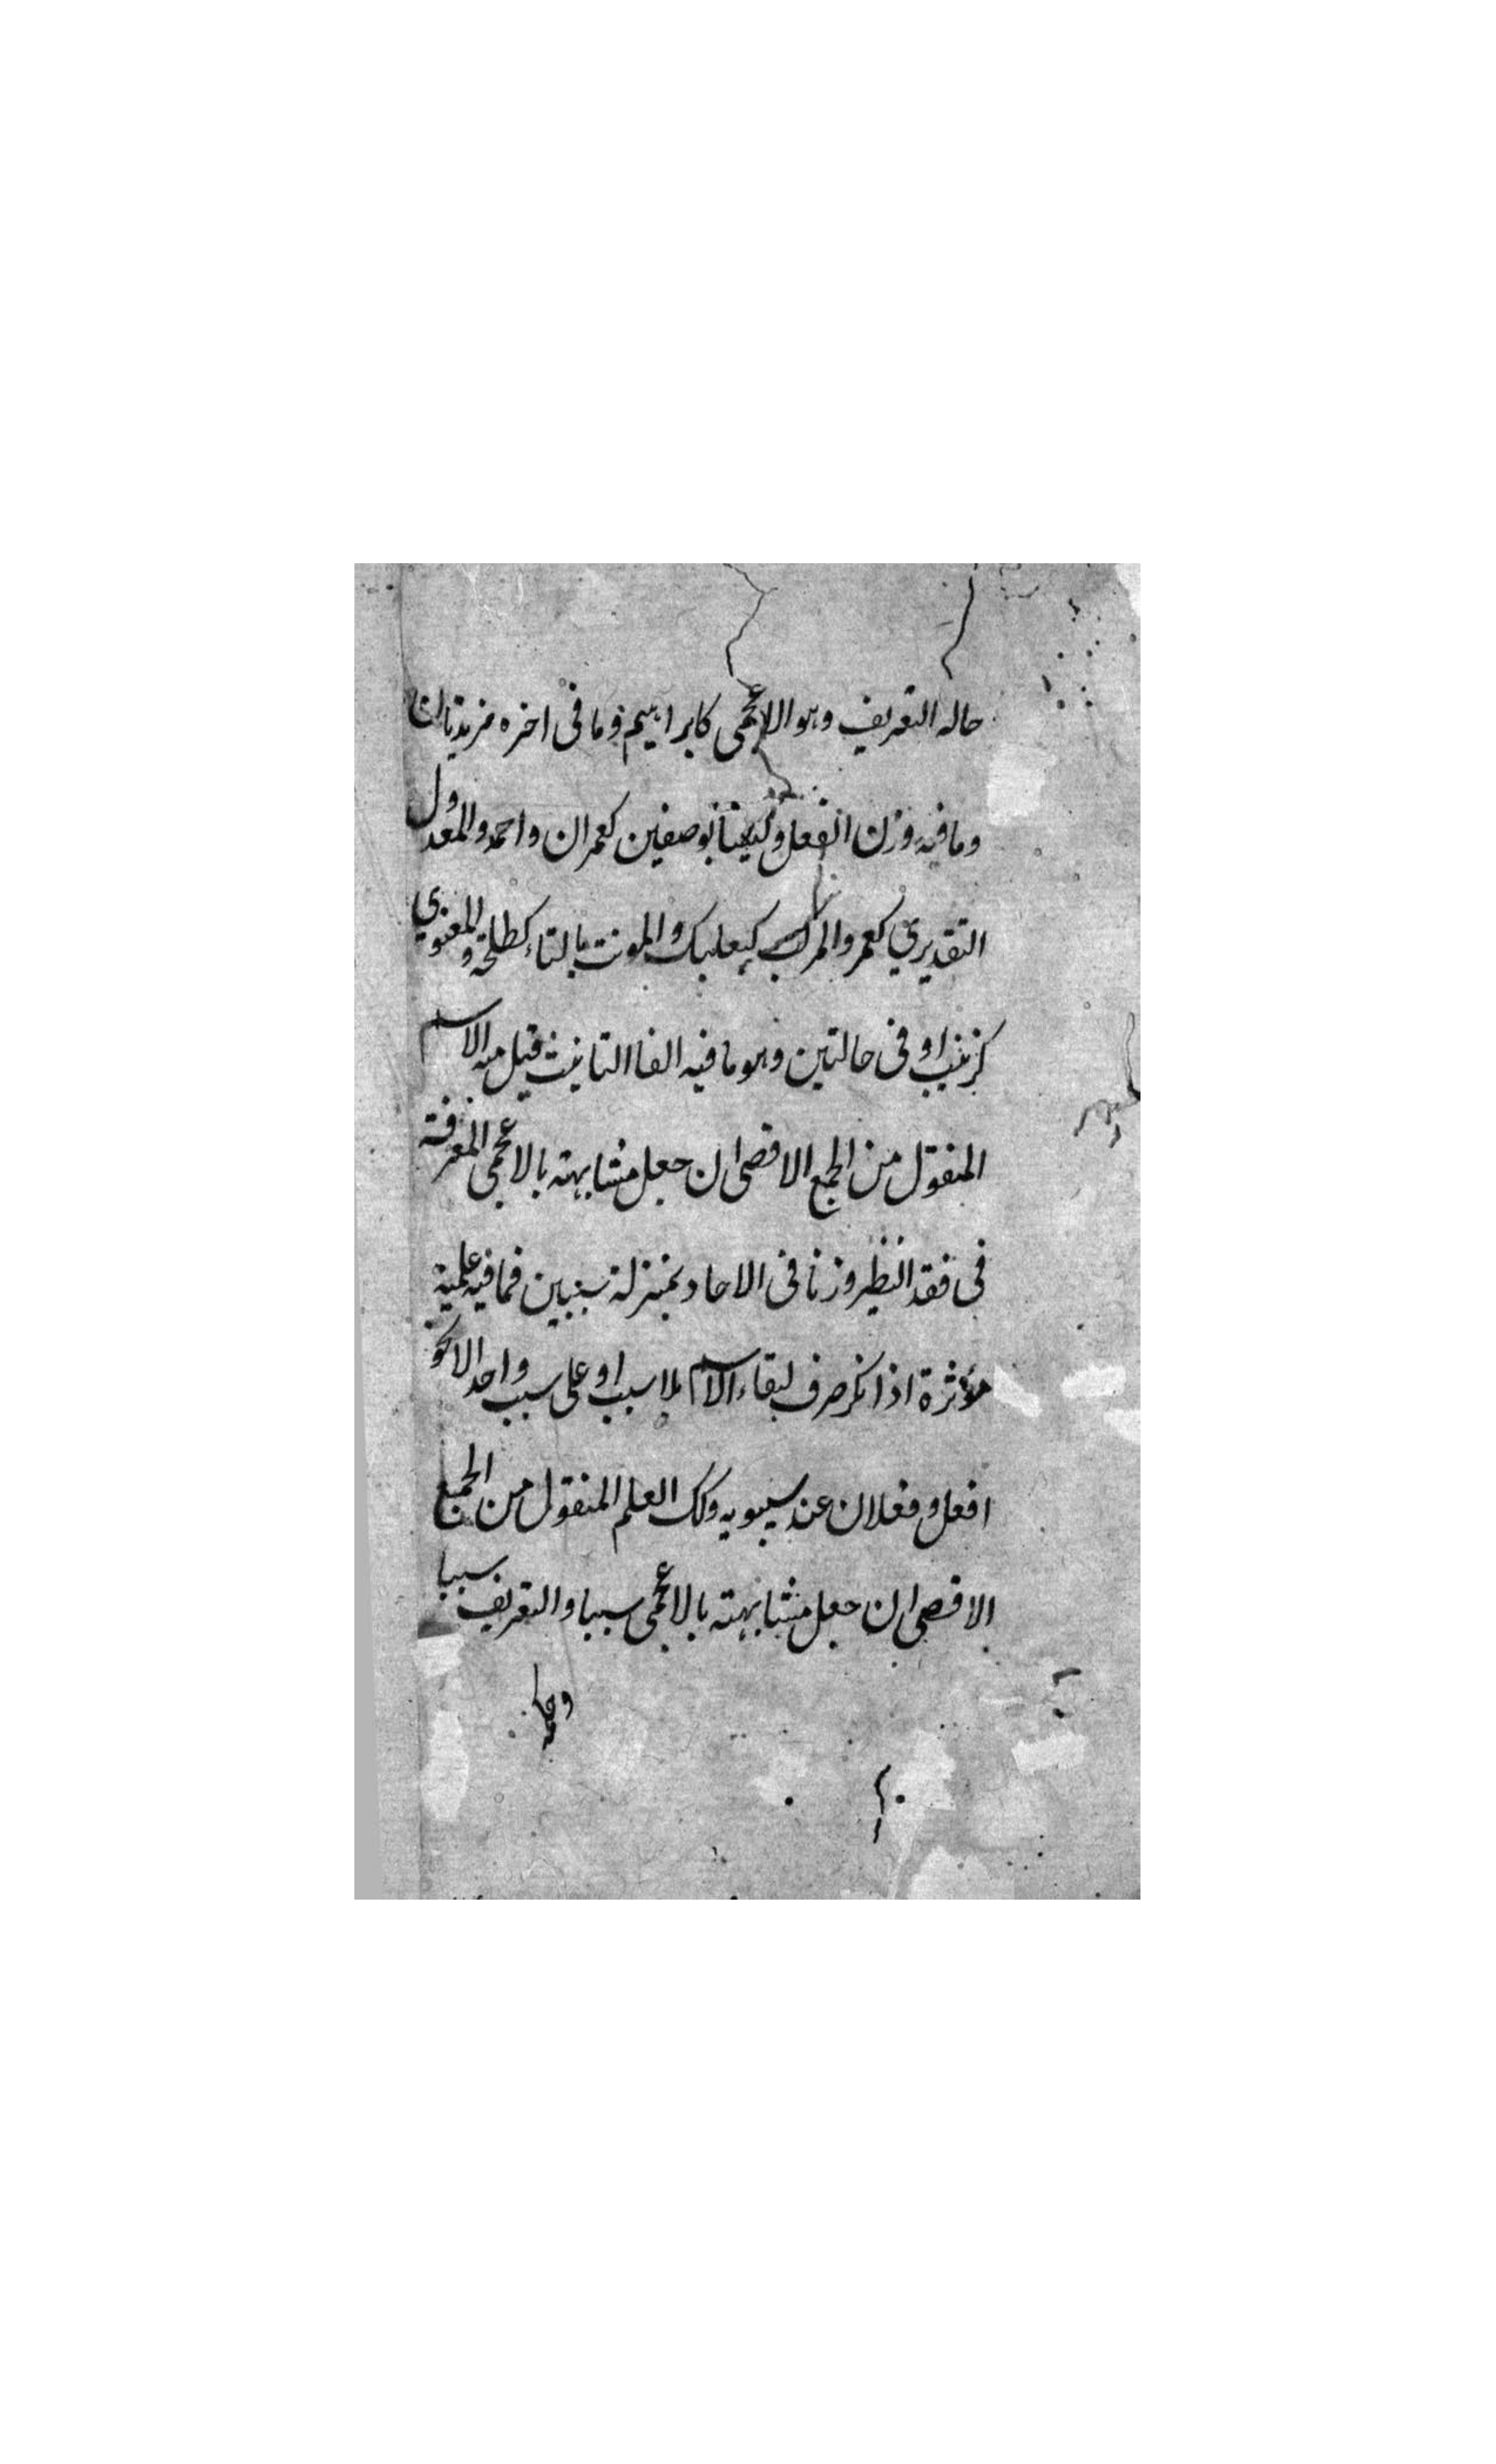 حاله التعريف وهو الاعجمى كابراهيم وما فى اخره مزيدتان
وما فيه وزن الفعل وليستا بوصفين كعمران واحمد والمعدول
التقديري كعمر والمركب كبعلبك والمونث بالتاء كطلحة والمعنوي
كزينب او فى حالتين وهو ما فيه الفا التانيث قيل منه الاسم
المنقول من الجمع الاقصى ان جعل مشابهته بالاعجمى المعرفة
فى فقد النظير وزنا فى الاحاد بمنزلة سببين فما فيه علمية
مؤثرة اذا نكر صرف لبقاء الاسم بلا سبب او على سبب واحد الا نحو
افعل وفعلان عند سيبويه وكك العلم المنقول من الجمع
الاقصى ان جعل مشابهته بالاعجمى سببا والتعريف سببا